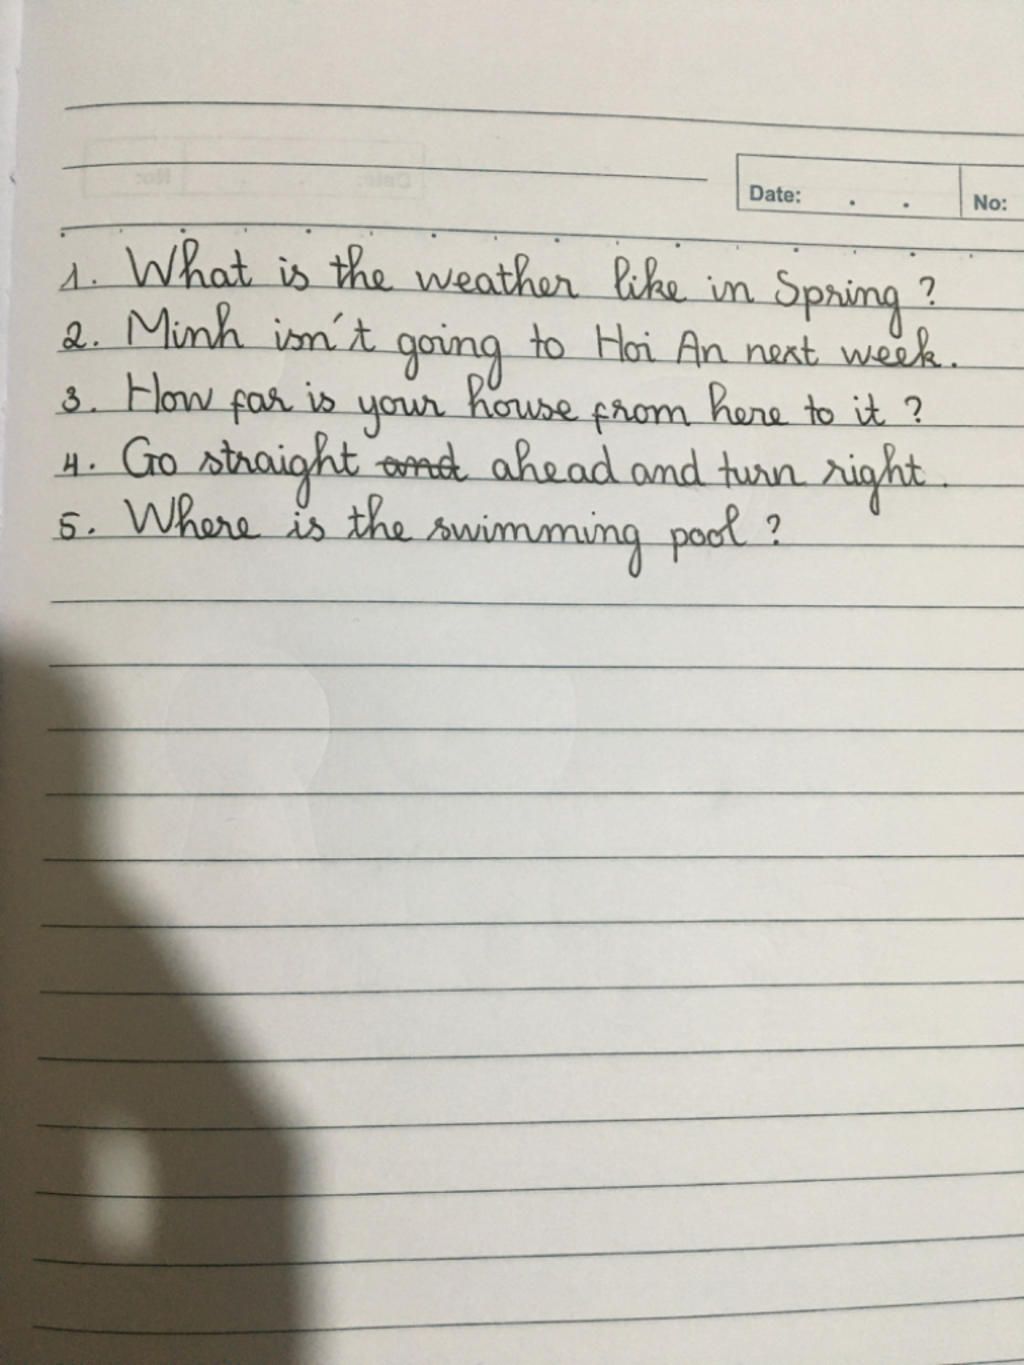 Date: . .
No:
1. What is the weather like in Spring ?
2. Minh isn't going to Hoi An next week.
3. How far is your house from here to it ?
4. Go straight and ahead and turn right.
5. Where is the swimming pool ?